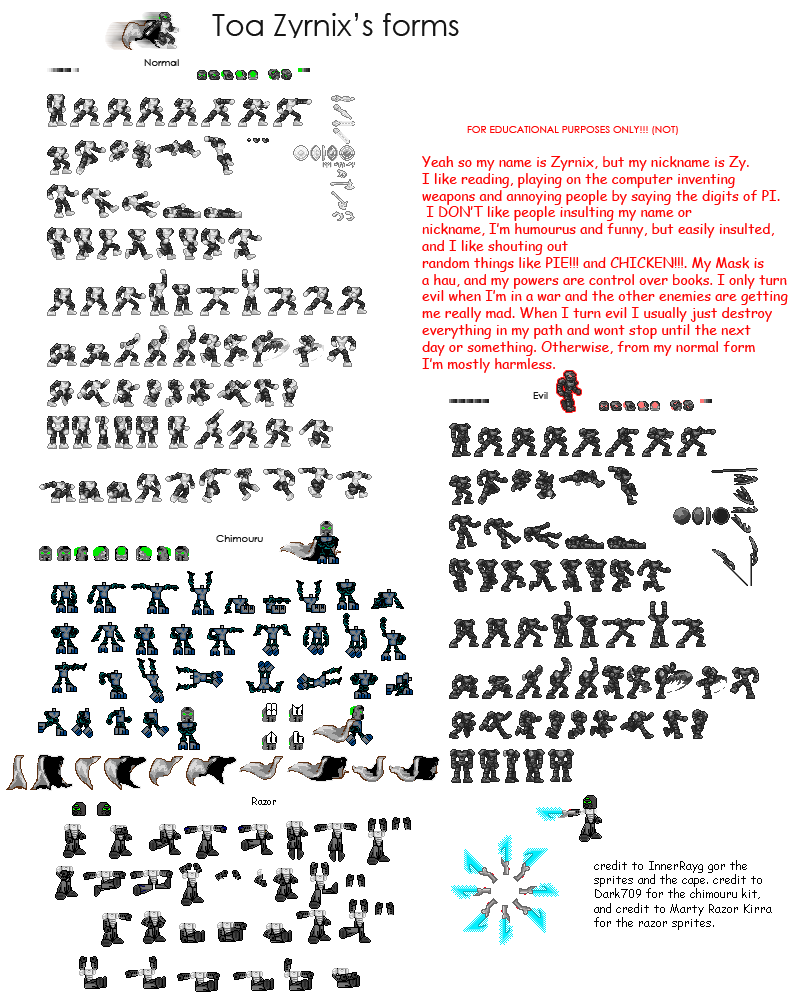 Toa Zyrnix's forms
Normal
FOR EDUCATIONAL PURPOSES ONLY!!! (NOT)
Yeah so my name is Zyrnix, but my nickname is Zy.
I like reading, playing on the computer inventing
weapons and annoying people by saying the digits of PI.
I DON'T like people insulting my name or
nickname, I'm humourus and funny, but easily insulted,
and I like shouting out
random things like PIE!!! and CHICKEN!!!. My Mask is
a hau, and my powers are control over books. I only turn
evil when I'm in a war and the other enemies are getting
me really mad. When I turn evil I usually just destroy
everything in my path and wont stop until the next
day or something. Otherwise, from my normal form
I'm mostly harmless.
Evil
Chimouru
Razor
credit to InnerRayg gor the
sprites and the cape. credit to
Dark709 for the chimouru kit,
and credit to Marty Razor Kirra
for the razor sprites.